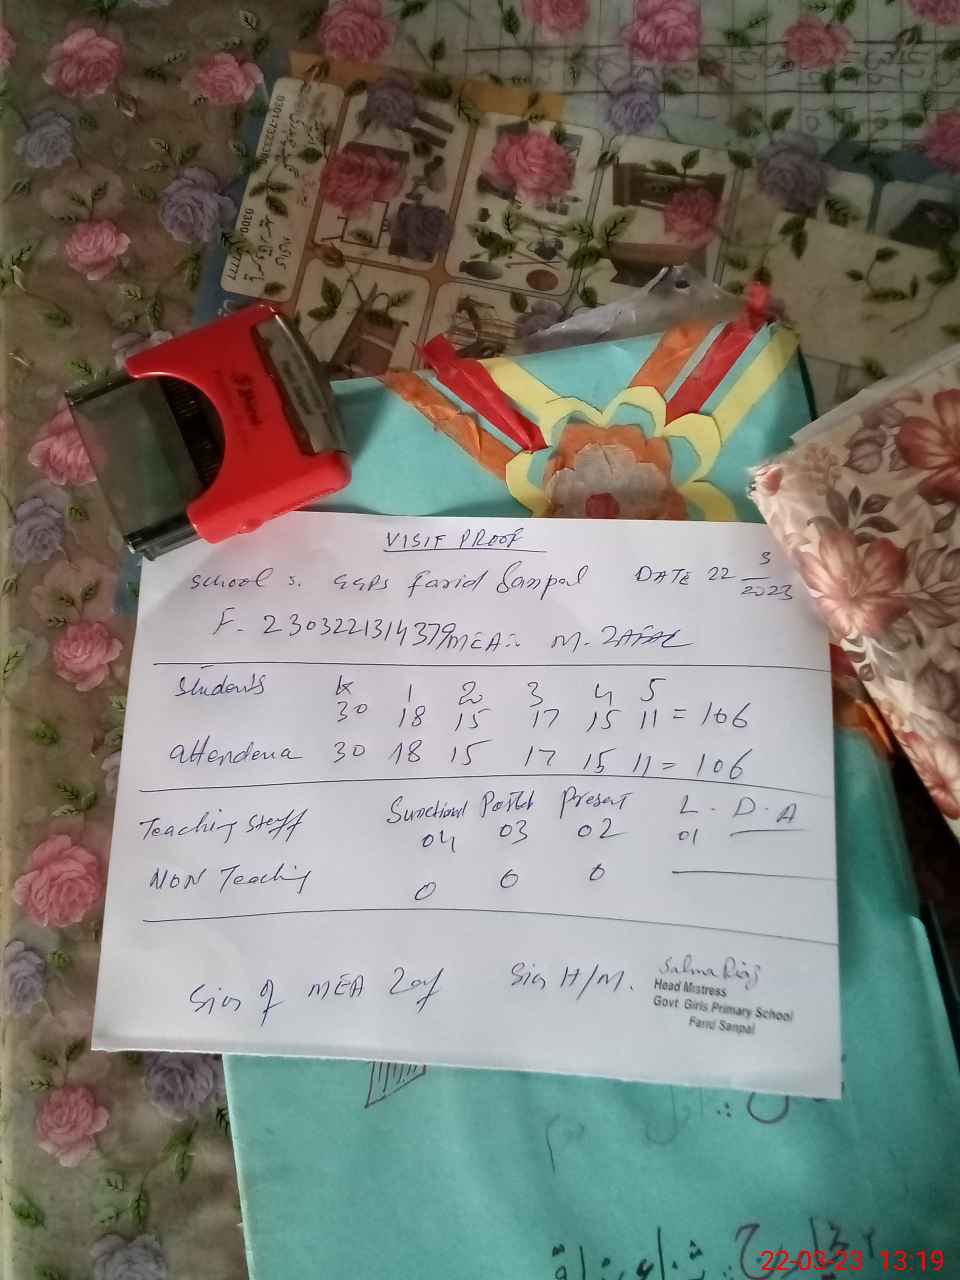 VISIT PROOF
School :. GGPS Farid Sanpal DATE 22 3/2023
F. 2303221314379 MEA:- M. ZAFAR
Students K 1 2 3 4 5
30 18 15 17 15 11 = 106
attendena 30 18 15 17 15 11 = 106
Sunctional Posted Present L . D . A
Teaching Staff 04 03 02 01 —
NON Teaching 0 0 0 —
Sign of MEA Zaf Sign H/M. Salma Riaz
Head Mistress
Govt. Girls Primary School
Farid Sanpal
22-03-23 13:19